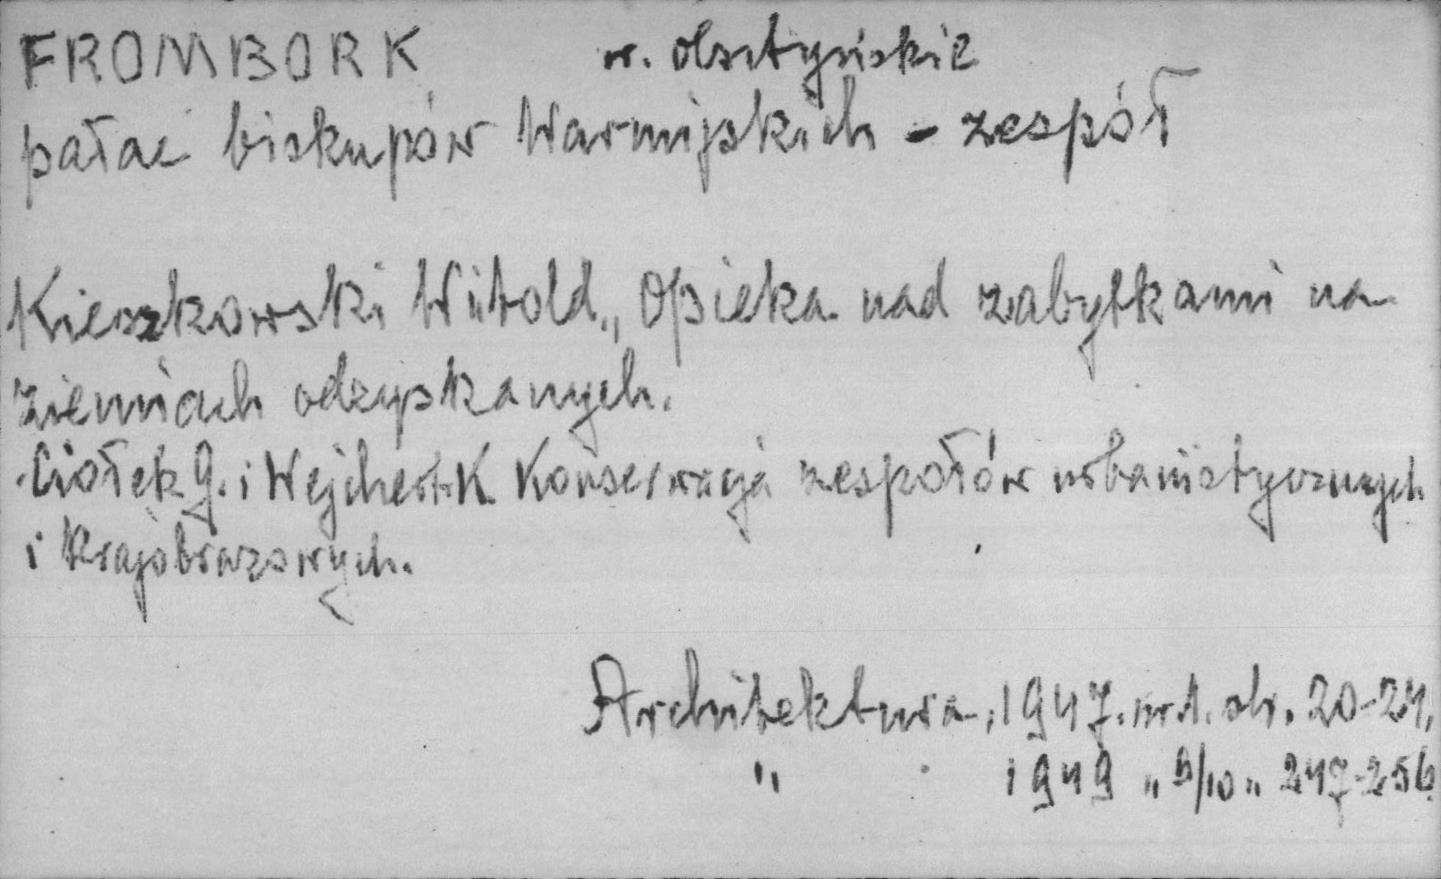 FROMBORK w. olsztyńskie
pałac biskupów Warmijskich - zespół
Kieszkowski Witold, Opieka nad zabytkami na
ziemiach odzyskanych.
Ciołek G. i Wejchert K Konserwacja zespołów urbanistycznych
i krajobrazowych.
Architektura, 1947. nr 1. str. 20-24,
" 1949 " 9/10 " 247-256